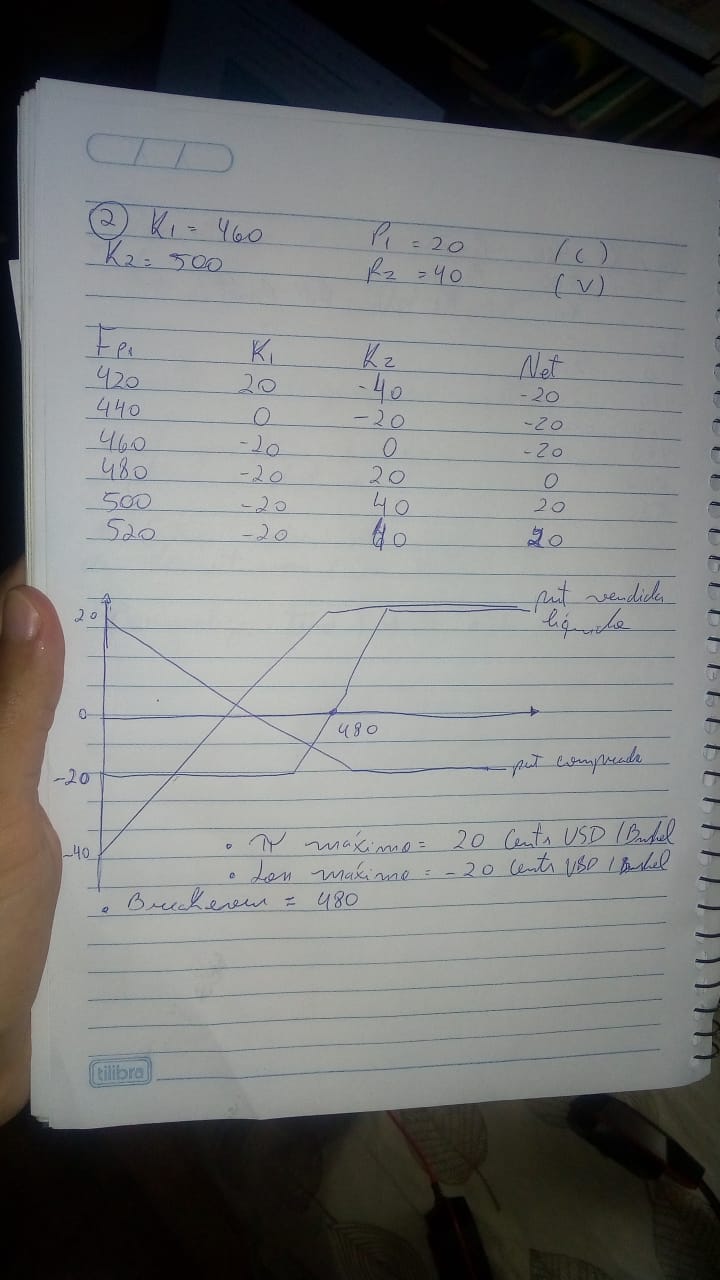 2 K1 = 460 P1 = 20 (C)
K2 = 500 P2 = 40 (V)
K1 K2 Net
420 20 -40 -20
440 0 -20 -20
460 -20 0 -20
480 -20 20 0
500 -20 40 20
520 -20 40 20
20 put vendida
líquida
0
480
-20 put comprada
-40
• π máximo = 20 Cents USD / Bushel
• Loss máximo = -20 Cents USD / Bushel
• Breakeven = 480
tilibra